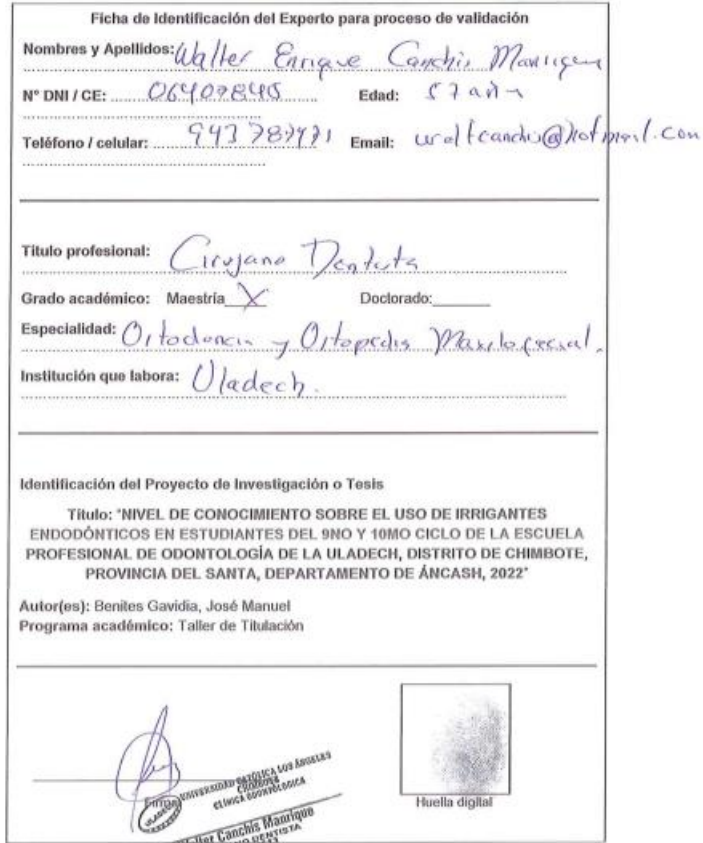 Ficha de Identificación del Experto para proceso de validación
Nombres y Apellidos: Walter Enrique Canchis Manrique
N° DNI / CE: Edad: 57 años
Teléfono / celular: Email:
Título profesional: Cirujano Dentista
Grado académico: Maestría X Doctorado:
Especialidad: Ortodoncia y Ortopedia Maxilofacial.
Institución que labora: Uladech.
Identificación del Proyecto de Investigación o Tesis
Título: "NIVEL DE CONOCIMIENTO SOBRE EL USO DE IRRIGANTES
ENDODÓNTICOS EN ESTUDIANTES DEL 9NO Y 10MO CICLO DE LA ESCUELA
PROFESIONAL DE ODONTOLOGÍA DE LA ULADECH, DISTRITO DE CHIMBOTE,
PROVINCIA DEL SANTA, DEPARTAMENTO DE ÁNCASH, 2022"
Autor(es): Benites Gavidia, José Manuel
Programa académico: Taller de Titulación
UNIVERSIDAD CATÓLICA LOS ÁNGELES
CHIMBOTE
CLÍNICA ODONTOLÓGICA
Firma
Huella digital
Canchis Manrique
DENTISTA